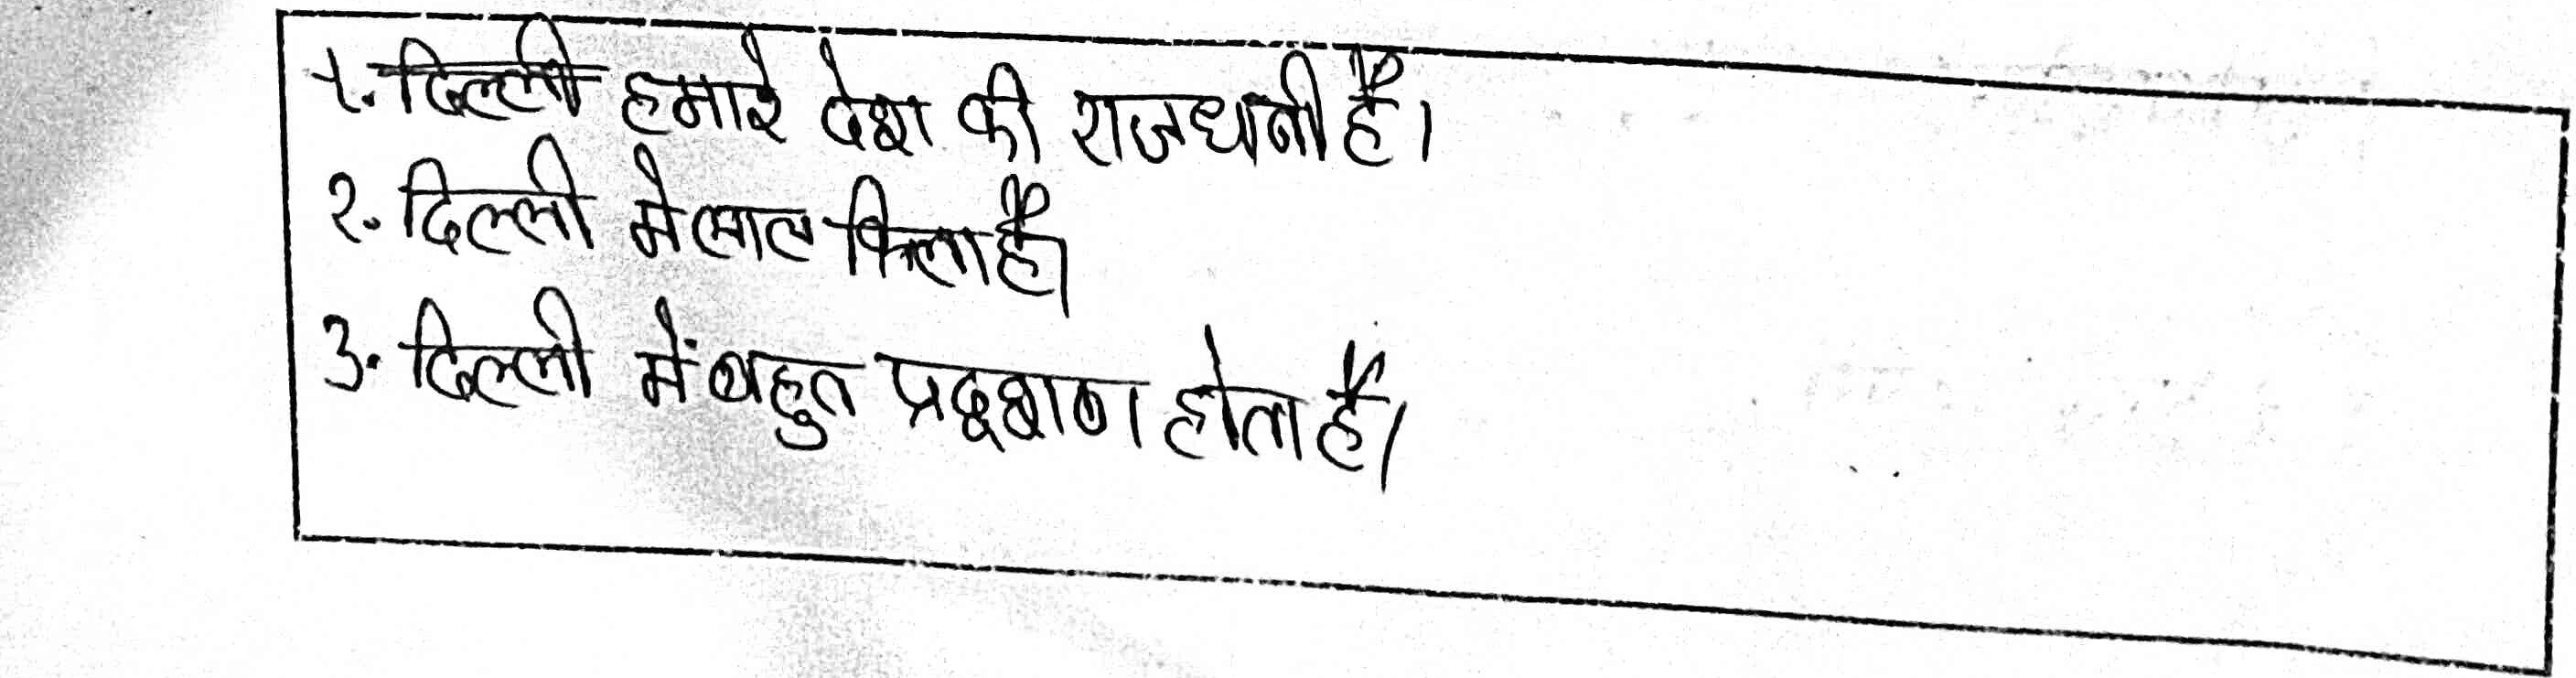 १. दिल्ली हमारे देश की राजधानी है।
२. दिल्ली मे लाल किला है।
३. दिल्ली में बहुत प्रदूशण होता है।